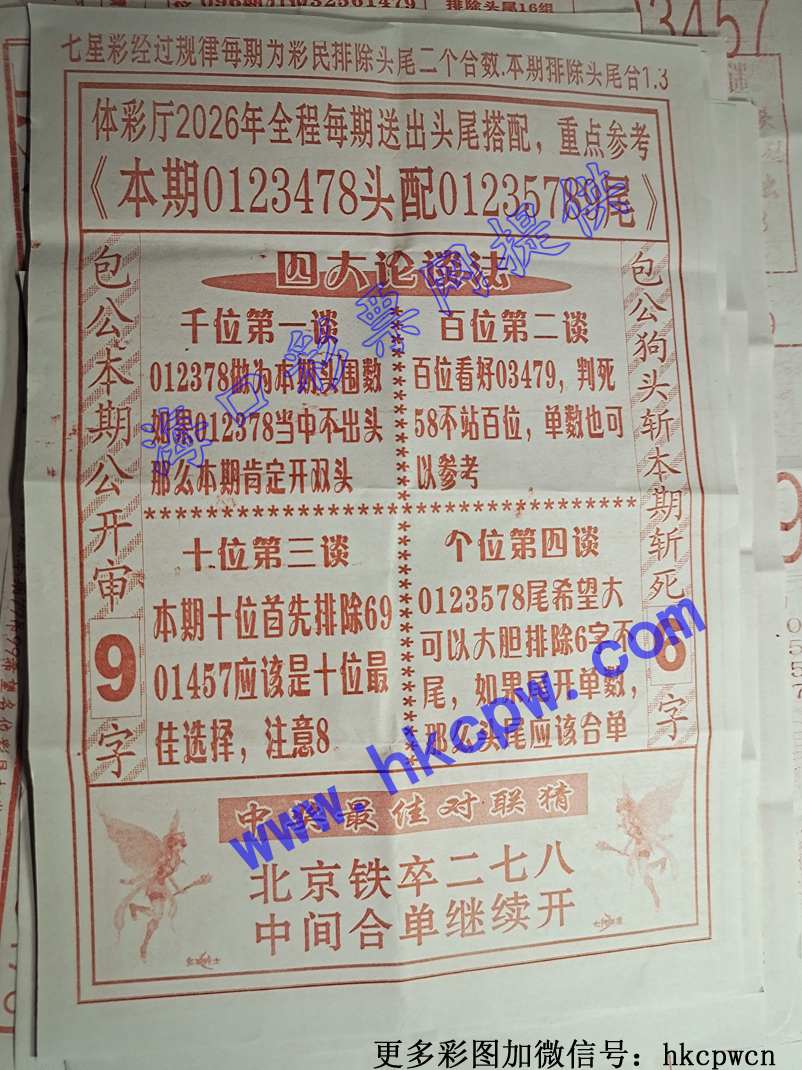 排除头尾16组
3457
七星彩经过规律每期为彩民排除头尾二个合数.本期排除头尾合1.3
体彩厅2026年全程每期送出头尾搭配，重点参考
《本期0123478头配01235789尾》
包公本期公开审9字
四大论谈法
千位第一谈
012378做为本期头围数
如果012378当中不出头
那么本期肯定开双头
百位第二谈
百位看好03479，判死
58不站百位，单数也可
以参考
十位第三谈
本期十位首先排除69
01457应该是十位最
佳选择，注意8
个位第四谈
0123578尾希望大
可以大胆排除6字不
尾，如果尾开单数，
那么头尾应该合单
包公狗头斩本期斩死6字
中奖最佳对联猜
北京铁卒二七八
中间合单继续开
海口彩票网提供
www.hkcpw.com
更多彩图加微信号：hkcpwcn